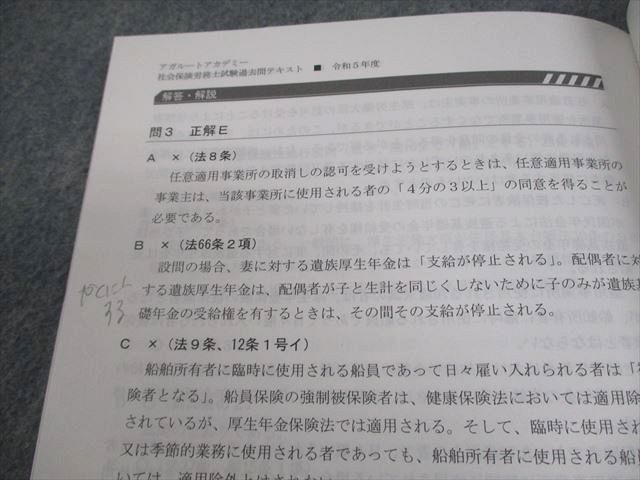 アガルートアカデミー
社会保険労務士試験過去問テキスト ■ 令和5年度
解答・解説
問3 正解E
A ×（法8条）
任意適用事業所の取消しの認可を受けようとするときは、任意適用事業所の
事業主は、当該事業所に使用される者の「4分の3以上」の同意を得ることが
必要である。
B ×（法66条2項）
設問の場合、妻に対する遺族厚生年金は「支給が停止される」。配偶者に対
する遺族厚生年金は、配偶者が子と生計を同じくしないために子のみが遺族基
礎年金の受給権を有するときは、その間その支給が停止される。
33
C ×（法9条、12条1号イ）
船舶所有者に臨時に使用される船員であって日々雇い入れられる者は「
険者となる」。船員保険の強制被保険者は、健康保険法においては適用除
されているが、厚生年金保険法では適用される。そして、臨時に使用され
又は季節的業務に使用される者であっても、船舶所有者に使用される船
いては、適用除外とはされない